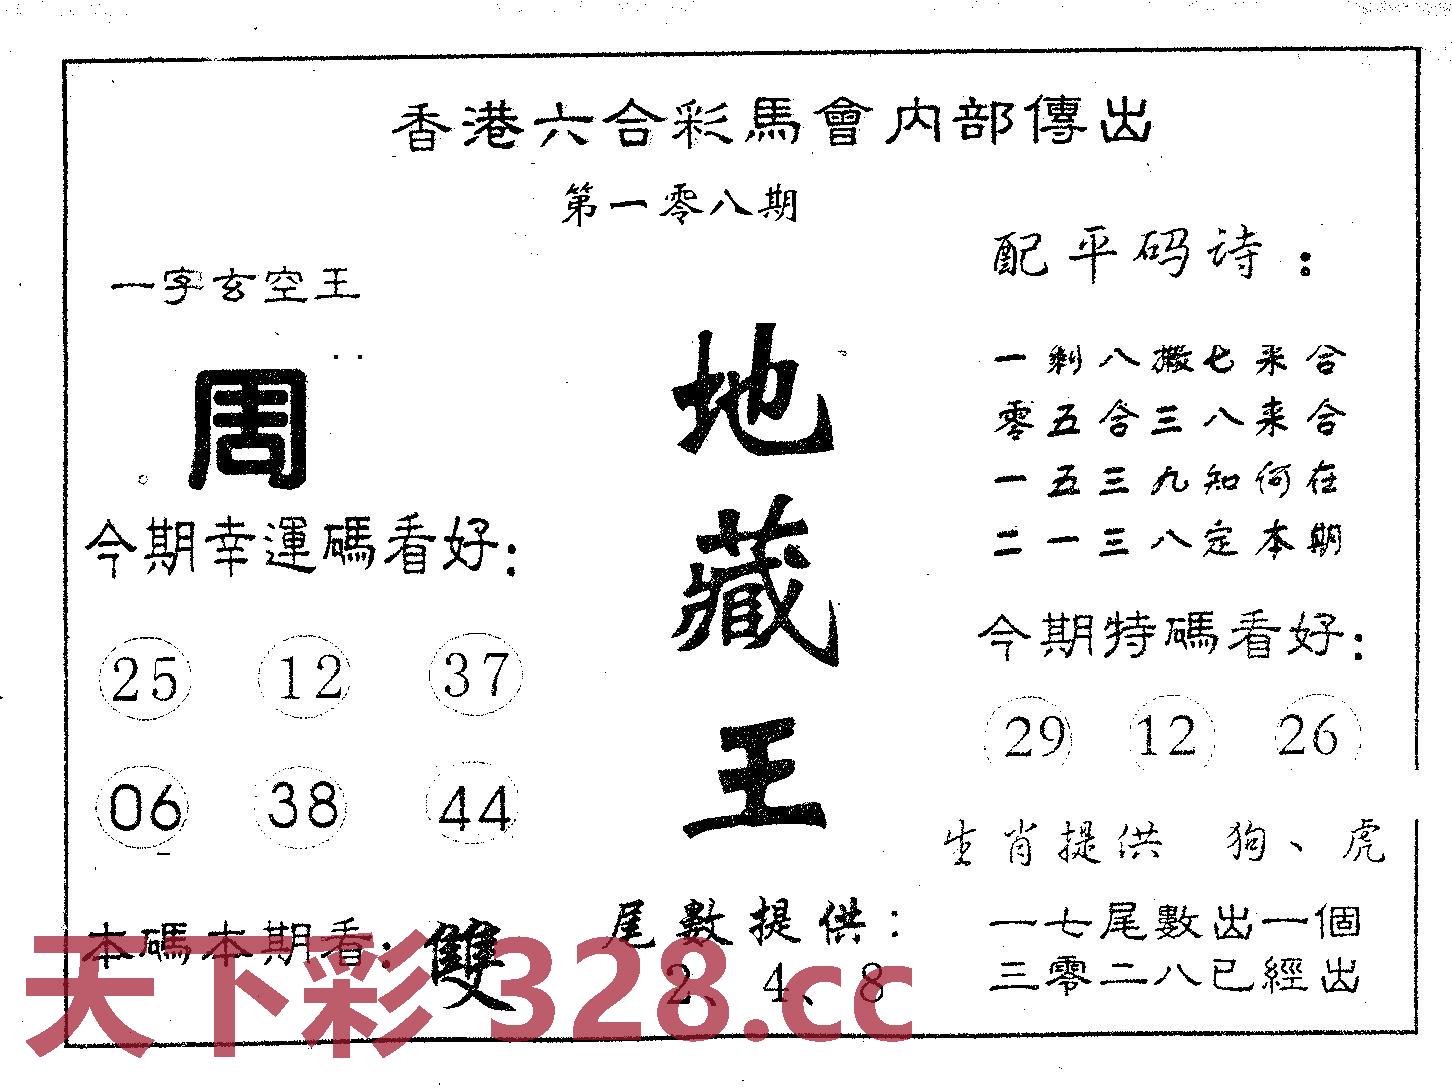 香港六合彩馬會内部傳出
第一零八期
一字玄空王
周
今期幸運碼看好:
25 12 37
06 38 44
本碼本期看: 雙
地
藏
王
尾數提供:
2、4、8
配平码诗:
一剩八搬七来合
零五合三八来合
一五三九知何在
二一三八定本期
今期特碼看好:
29 12 26
生肖提供 狗、虎
一七尾數出一個
三零二八已經出
天下彩 328.cc